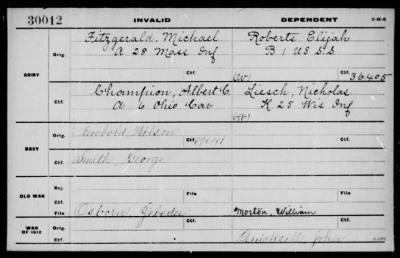 30012 INVALID DEPENDENT
Fitzgerald, Michael Roberts, Elijah
Orig. A 28 Mass Inf B 1 U S S.S.
ARMY (W) Ctf. 36405
Champion, Albert C. Liesch, Nicholas
Ctf. A 6 Ohio Cav K 25 Wis Inf
(W)
Orig. Newbold, Nelson Ctf.
NAVY
Ctf. Smith, George
Rej. File Ctf. File
OLD WAR
Ctf.
Orig. Osborn, Morton, William
WAR OF 1812
Ctf. John